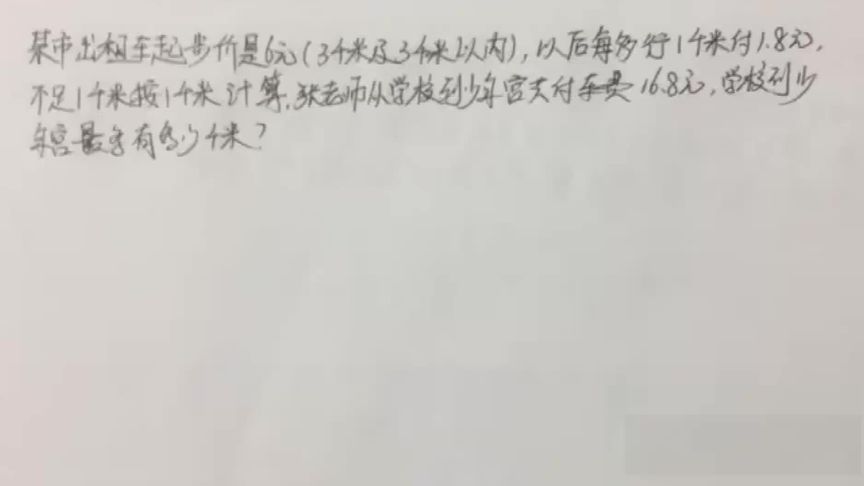 某市出租车起步价是6元(3千米及3千米以内),以后每多行1千米付1.8元,
不足1千米按1千米计算.张老师从学校到少年宫共付车费16.8元,学校到少
年宫最多有多少千米?